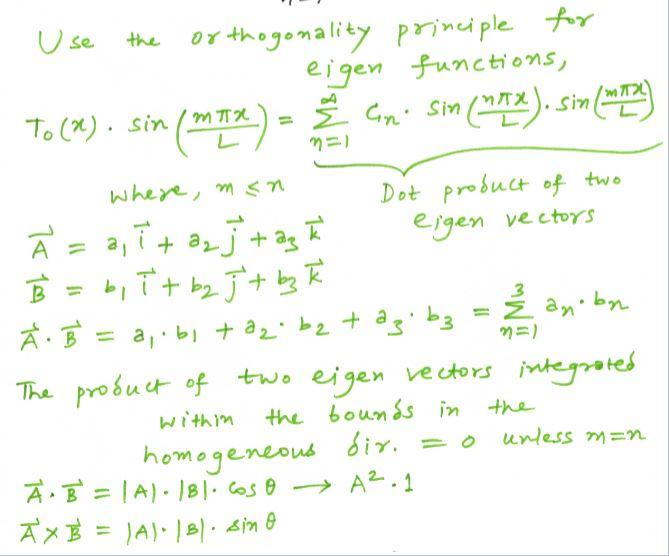 Use the orthogonality principle for
eigen functions,
T₀(x) · sin(mπx/L) = ∑_{n=1}^{∞} Gₙ · sin(nπx/L) · sin(mπx/L)
where, m ≤ n
Dot product of two
eigen vectors
A⃗ = a₁ i⃗ + a₂ j⃗ + a₃ k⃗
B⃗ = b₁ i⃗ + b₂ j⃗ + b₃ k⃗
A⃗ · B⃗ = a₁ · b₁ + a₂ · b₂ + a₃ · b₃ = ∑_{n=1}^{3} aₙ · bₙ
The product of two eigen vectors integrated
within the bounds in the
homogeneous dir. = 0 unless m=n
A⃗ · B⃗ = |A| · |B| · cos θ → A² · 1
A⃗ × B⃗ = |A| · |B| · sin θ